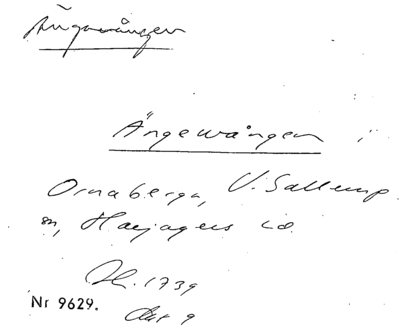 Ängavången
Ängewången
Ornaberga, V. Sallerup
sn, Harjagers hd.
Sk. 1739
Nr 9629. Akt 9